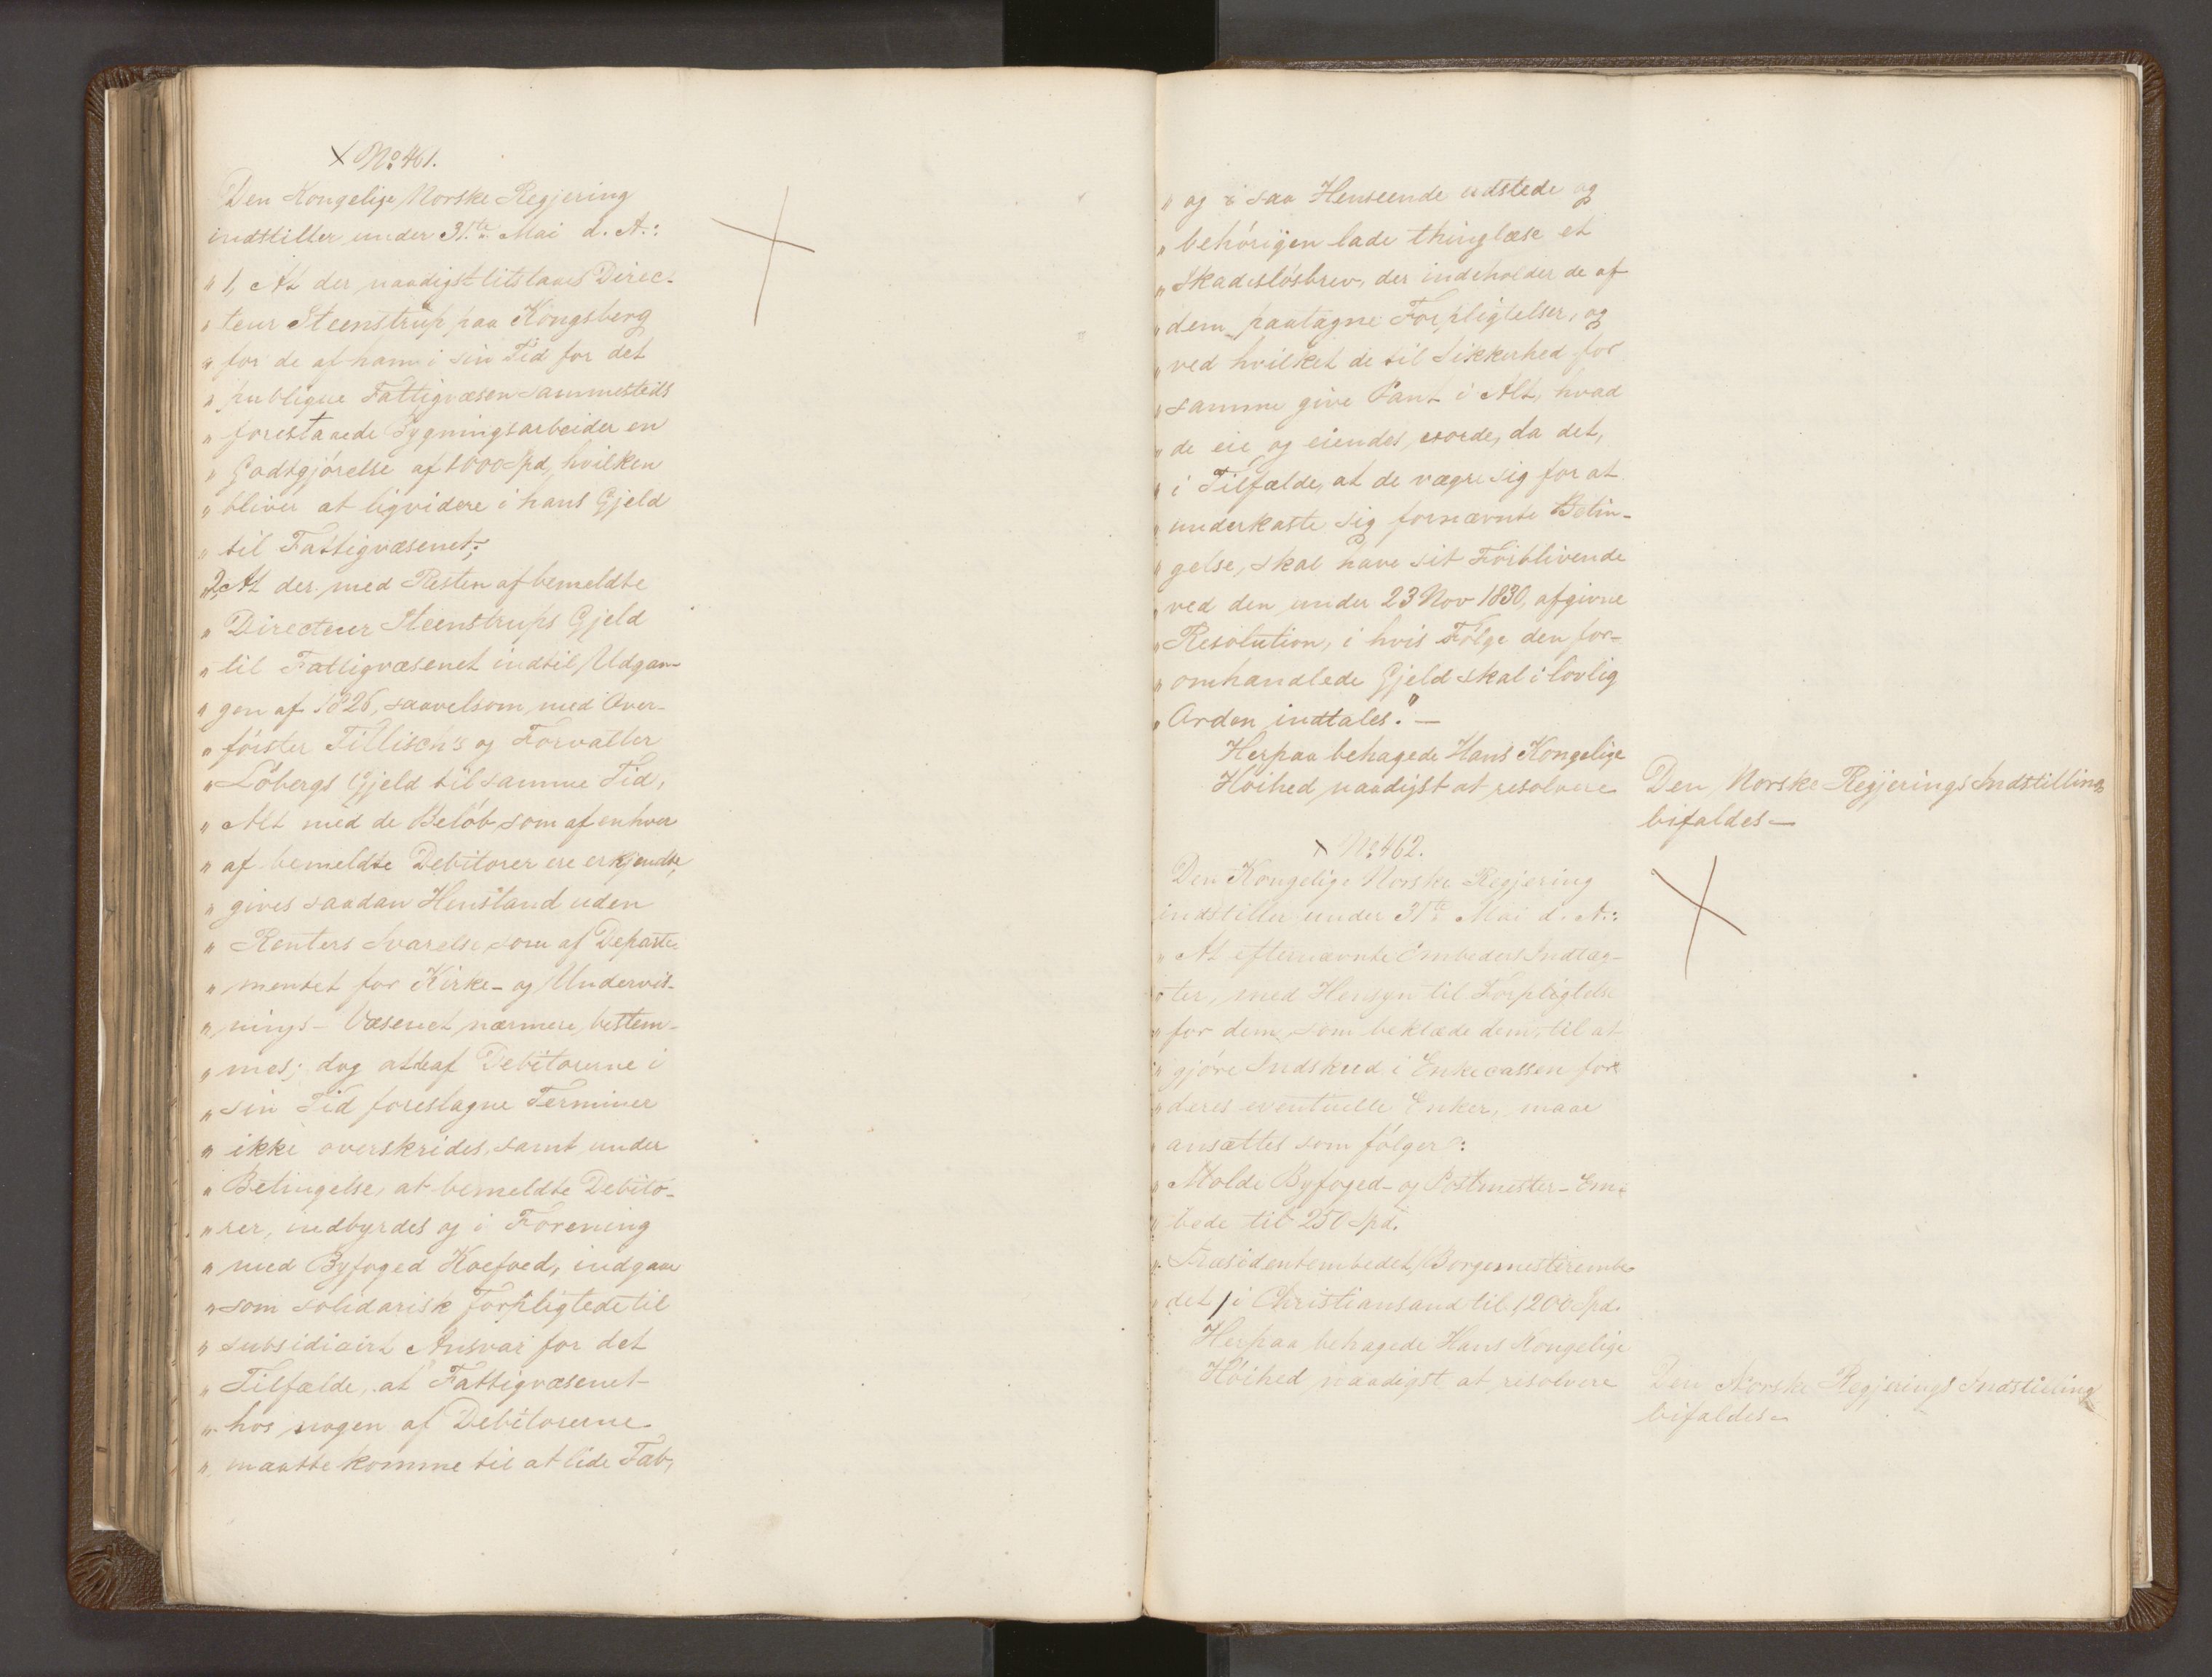 × No: 461.
Den Kongelige Norske Regjering
indstiller under 31.te Mai d. A.:
" 1, At der naadigst tilstaaes Direc-
" teur Steenstrup paa Kongsberg
" for de af ham i sin Tid for det
" publique Fattigvæsen sammesteds
" forestaaede Bygningsarbeider en
" Godtgjórelse af 1000 Spd, hvilken
" bliver at liqvidere i hans Gjeld
" til Fattigvæsenet;
" 2, At der, med Resten af bemeldte
" Directeur Steenstrups Gjeld
" til Fattigvæsenet indtil Udgan-
" gen af 1826, saavelsom med Over-
" fórster Tillisch's og Forvalter
" Lóbergs Gjeld til samme Tid,
" Alt med de Belób, som af enhver
" af bemeldte Debitorer ere erkjendte,
" gives saadan Henstand uden
" Renters Svarelse, som af Departe-
" mentet for Kirke- og Undervis-
" nings- Væsenet nærmere bestem-
" mes; dog at de af Debitorerne i
" sin Tid foreslagne Terminer
" ikke overskrides, samt under
" Betingelse, at bemeldte Debito-
" rer, indbyrdes og i Forening
" med Byfoged Koefoed, indgaae
" som solidarisk forpligtede til
" subsidiairt Ansvar for det
" Tilfælde, at Fattigvæsenet
" hos nogen af Debitorerne
" maatte komme til at lide Tab,
" og i saa Henseende udstede og
" behórigen lade thinglæse et
" Skadeslósbrev, der indeholder de af
" dem paatagne Forpligtelser, og
" ved hvilket de til Sikkerhed for
" samme give Pant i Alt, hvad
" de eie og eiendes vorde, da det,
" i Tilfælde, at de vægre sig for at
" underkaste sig fornævnte Betin-
" gelse, skal have sit Forblivende
" ved den under 23 Nov 1830, afgivne
" Resolution, i hvis Fólge den for-
" omhandlede Gjeld skal i lovlig
" Orden indtales." —
Herpaa behagede Hans Kongelige
Hóihed naadigst at resolvere
Den Norske Regjerings Indstilling
bifaldes —
× No: 462.
Den Kongelige Norske Regjering
indstiller under 31te Mai d. A.:
" At efternævnte Embeders Indtæg-
" ter, med Hensyn til Forpligtelse
" for dem, som beklæde dem, til at
" gjóre Indskud i Enkecassen for
" deres eventuelle Enker, maae
" ansættes som fólger:
" Molde Byfoged- og Postmester- Em-
" bede til 250 Spd.
" Præsidentembedet/Borgemesterembe
" det/i Christiansand til 1200 Spd.
Herpaa behagede Hans Kongelige
Hóihed naadigst at resolvere
Den Norske Regjerings Indstilling
bifaldes —